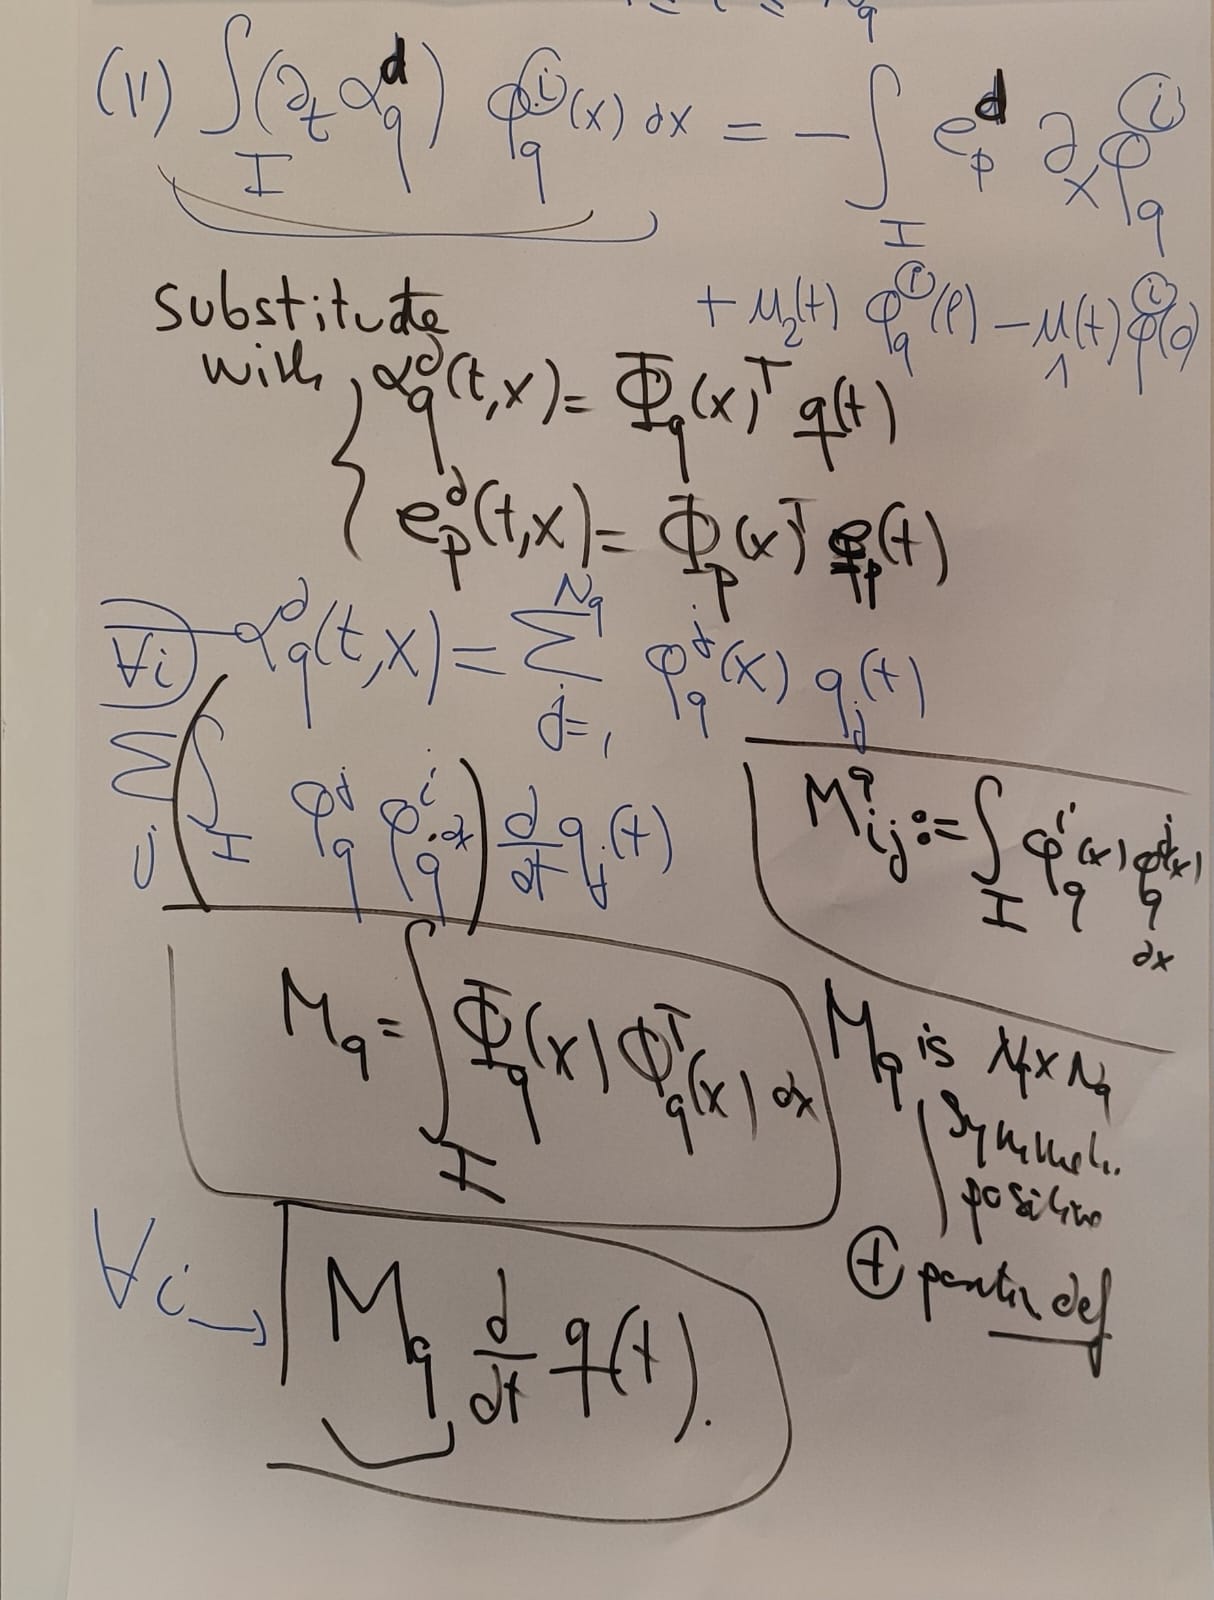 (11) ∫_I (∂_t α_q^d) φ_q^{(i)}(x) dx = − ∫_I e_p^d ∂_x φ_q^{(i)}
+ μ_2(t) φ_q^{(i)}(ℓ) − μ_1(t) φ^{(i)}(0)
substitute
with { α_q^d(t,x) = Φ_q(x)^T q(t)
e_p^d(t,x) = Φ_p(x)^T e_p(t)
∀i α_q^d(t,x) = ∑_{j=1}^{N_q} φ_q^j(x) q_j(t)
∑_j ( ∫_I φ_q^j φ_q^i dx ) d/dt q_j(t)
M^q_{ij} := ∫_I φ_q^i(x) φ_q^j(x) dx
M_q = ∫_I Φ_q(x) Φ_q^T(x) dx
M_q is N_q x N_q
symmetr.
positive
⊕ def
∀i → M_q d/dt q(t).